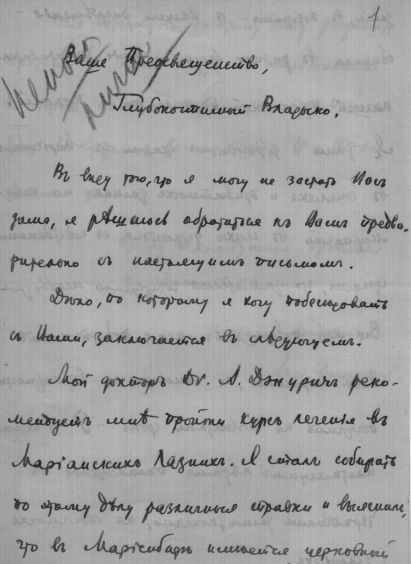 1
Ваше Преосвященство,
Глубокочтимый Владыко,
Въ виду того, что я могу не застать Васъ
дома, я рѣшаюсь обратиться къ Вамъ предва-
рительно съ настоящимъ письмомъ.
Дѣло, по которому я хочу побесѣдовать
съ Вами, заключается въ слѣдующемъ.
Мой докторъ Dr. А. Дзнуричъ реко-
мендуетъ мнѣ пройти курсъ леченія въ
Маріанскихъ Лазняхъ. Я сталъ собирать
по этому дѣлу различныя справки и выяснилъ,
что въ Маріенбадѣ имѣется церковный